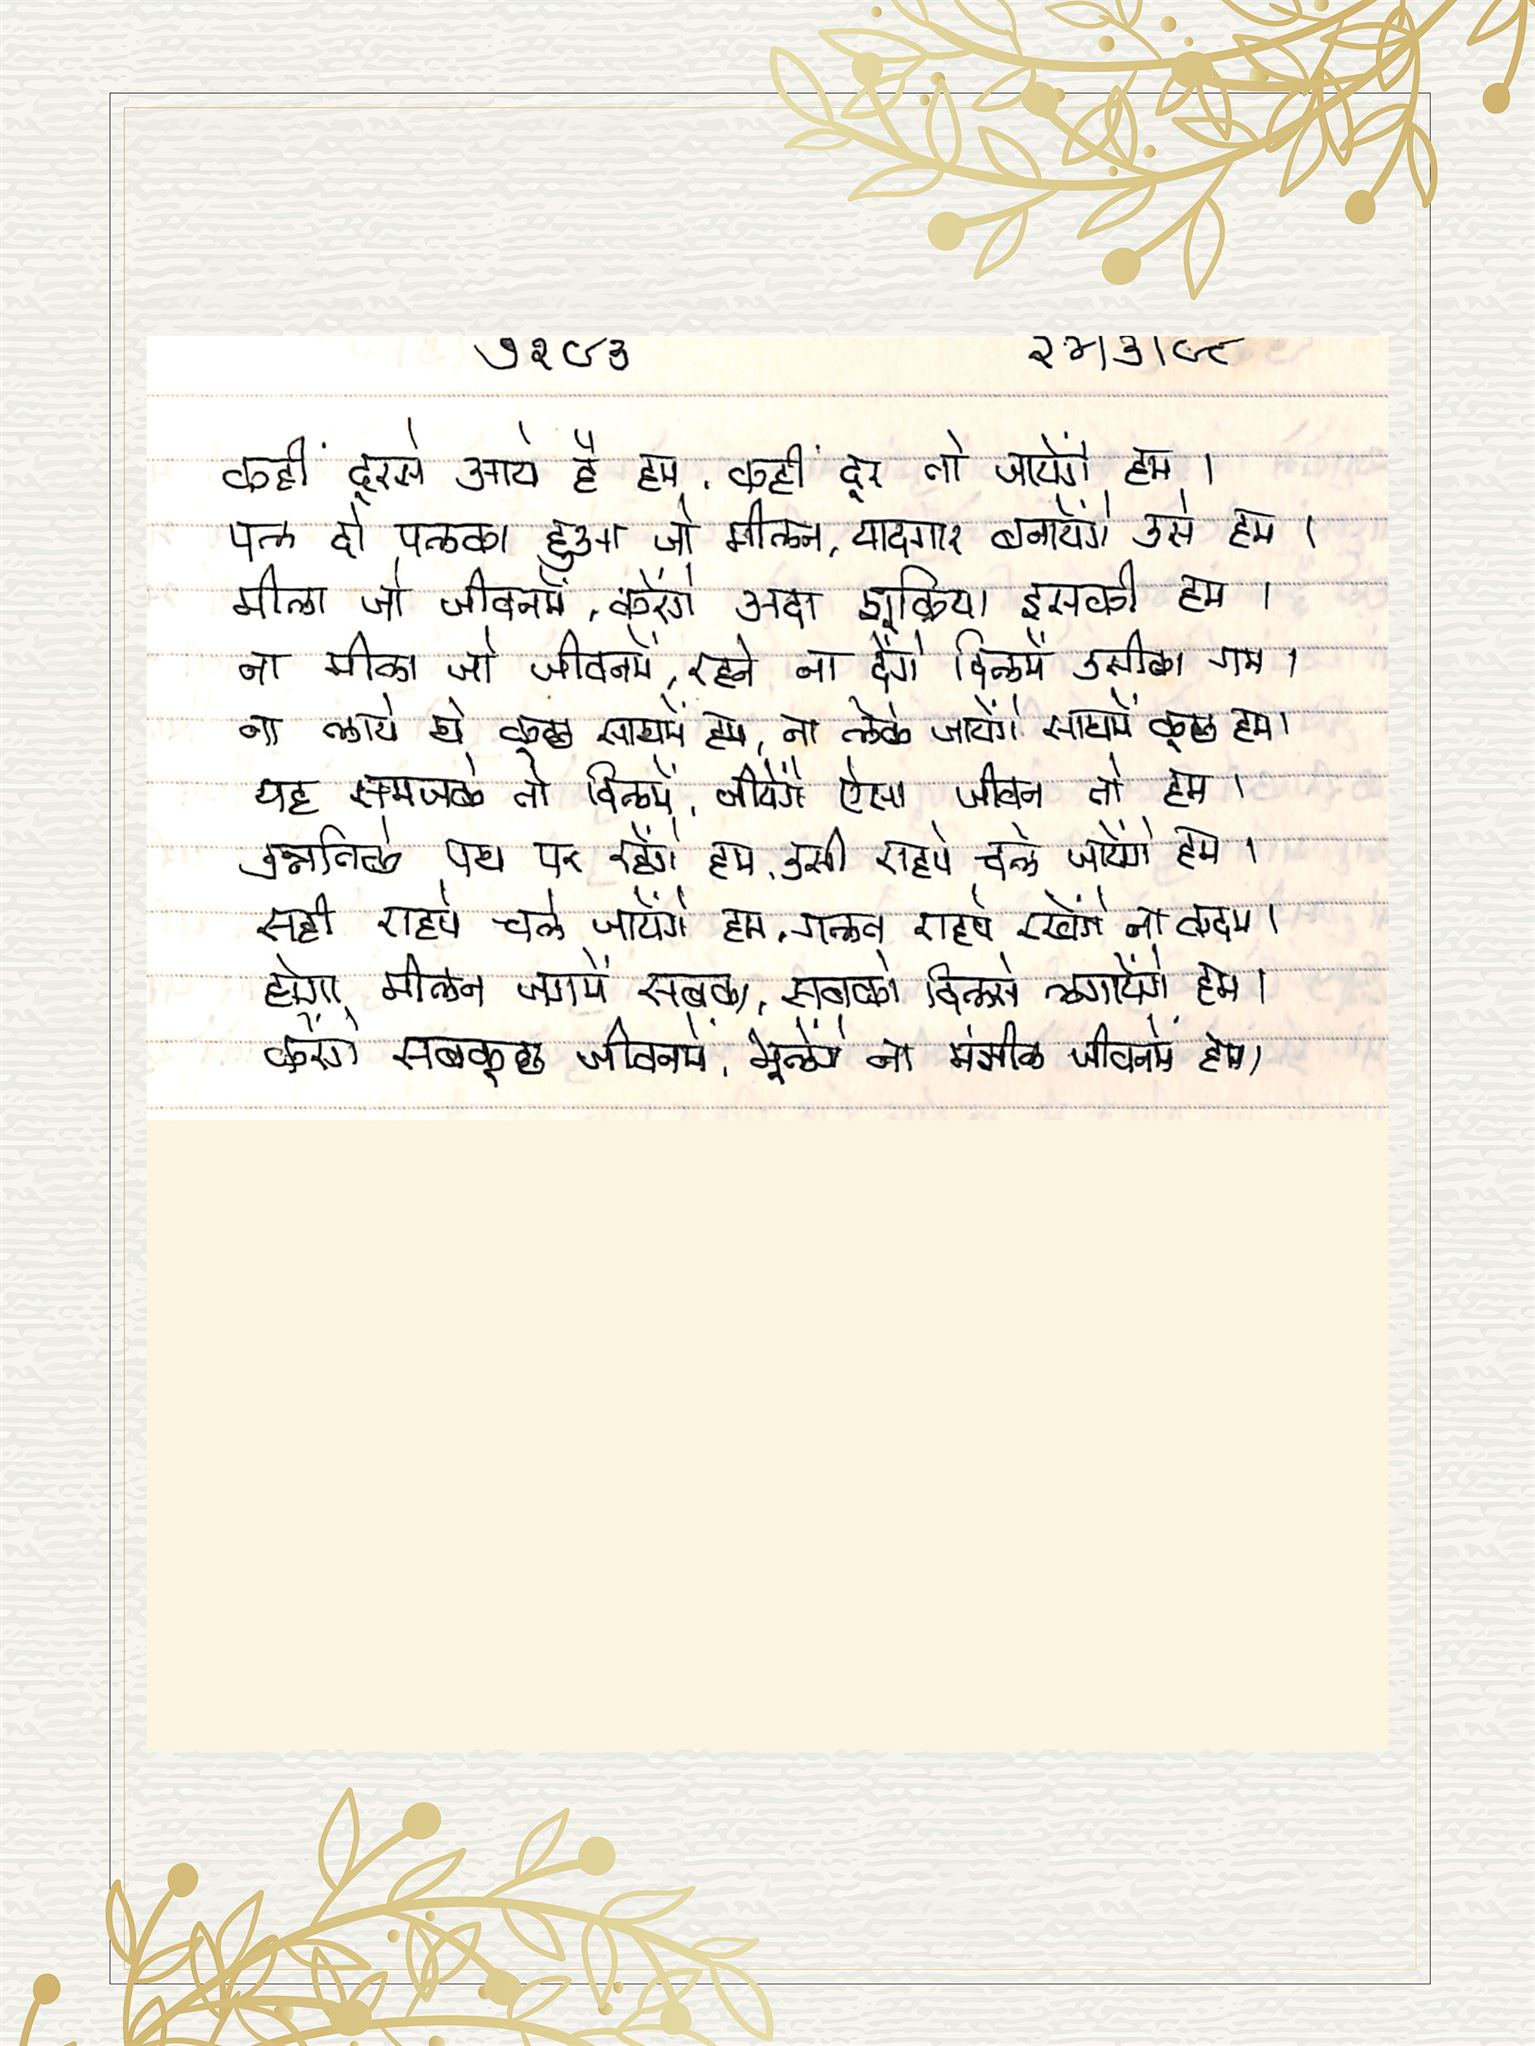 ७२८३ २४/३/९८
कहीं दूरसे आये है हम, कहीं दूर तो जायेंगे हम ।
पल दो पलका हुआ जो मीलन, यादगार बनायेंगे उसे हम ।
मीला जो जीवनमें, करेंगे अदा शूक्रिया इसकी हम ।
ना मीला जो जीवनमें, रहने ना देंगे दिलमें उसीका गम ।
ना लाये थे कूछ साथमें हम, ना लेके जायेंगे साथमें कूछ हम।
यह समजके तो दिलमें, जीयेंगे ऐसा जीवन तो हम ।
उन्नतिके पथ पर रहेंगे हम, उसी राहपे चले जायेंगे हम ।
सही राहपे चले जायेंगे हम, गलत राहपे रखेंगे ना कदम।
होगा मीलन जगमें सबका, सबको दिलसे लगायेंगे हम।
करेंगे सबकूछ जीवनमें, भूलेंगे ना मंझील जीवनमें हम।